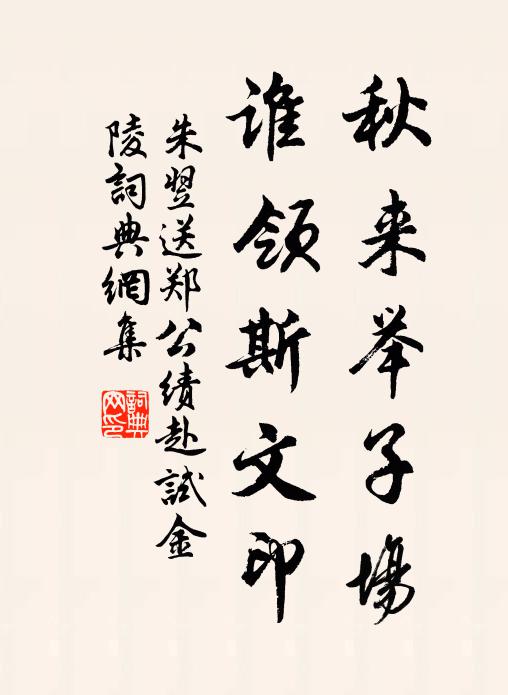 秋来举子场
谁领斯文印
朱翌送郑公绩赴試金
陵詞典網集
詞典
网印